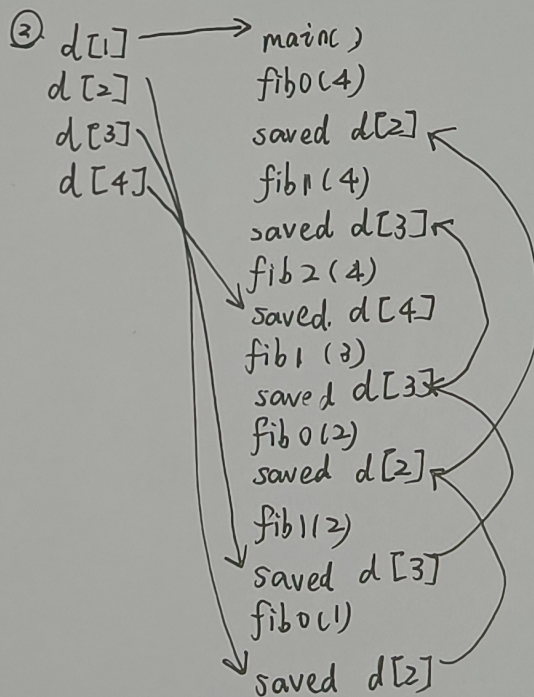 ②
d[1]
d[2]
d[3]
d[4]
main()
fib0(4)
saved d[2]
fib1(4)
saved d[3]
fib2(4)
saved. d[4]
fib1(3)
saved d[3]
fib0(2)
saved d[2]
fib1(2)
saved d[3]
fib0(1)
saved d[2]